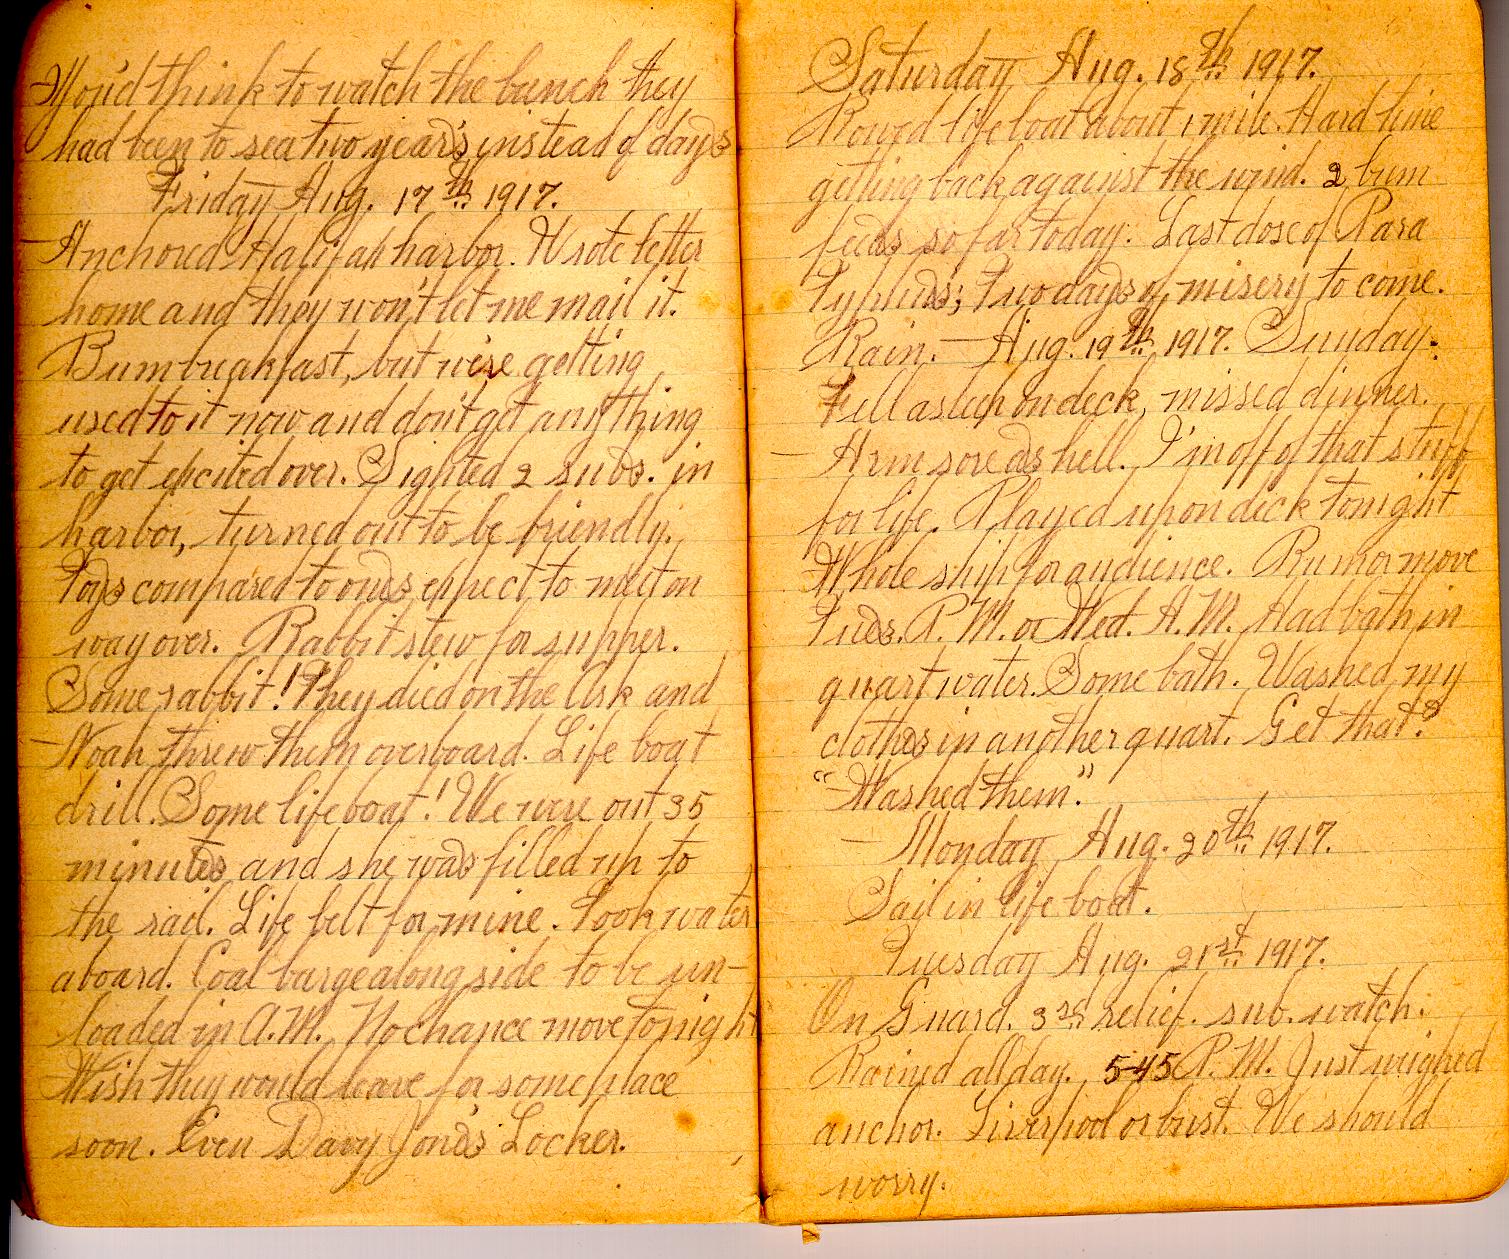 You'd think to watch the bunch they
had been to sea two years instead of days
Friday Aug. 17th 1917.
Anchored Halifax harbor. Wrote letter
home and they won't let me mail it.
Bum breakfast, but we're getting
used to it now and don't get anything
to get excited over. Sighted 2 subs. in
harbor, turned out to be friendly.
Toys compared to ones expect to meet on
way over. Rabbit stew for supper.
Some rabbit! They died on the Ark and
Noah threw them overboard. Life boat
drill. Some life boat! We were out 35
minutes and she was filled up to
the rail. Life belt for mine. Took water
aboard. Coal barge alongside to be un-
loaded in A.M. No chance move tonight
Wish they would leave for some place
soon. Even Davy Jones Locker.
Saturday Aug. 18th 1917.
Rowed life boat about 1 mile. Hard time
getting back against the wind. 2 bum
feeds so far today. Last dose of Para
Typhus; Two days of misery to come.
Rain. — Aug. 19th 1917. Sunday.
Fell asleep on deck, missed dinner.
— Arm sore as hell. I'm off of that stuff
for life. Played upon deck tonight
Whole ship for audience. Rumor move
Tues. P.M. or Wed. A.M. Had bath in
quart water. Some bath. Washed my
clothes in another quart. Get that?
"Washed them".
— Monday Aug. 20th 1917.
Sail in life boat.
Tuesday Aug. 21st 1917.
On Guard. 3rd relief. sub. watch.
Rained all day. 5-45 P.M. Just weighed
anchor. Liverpool or bust. We should
worry.